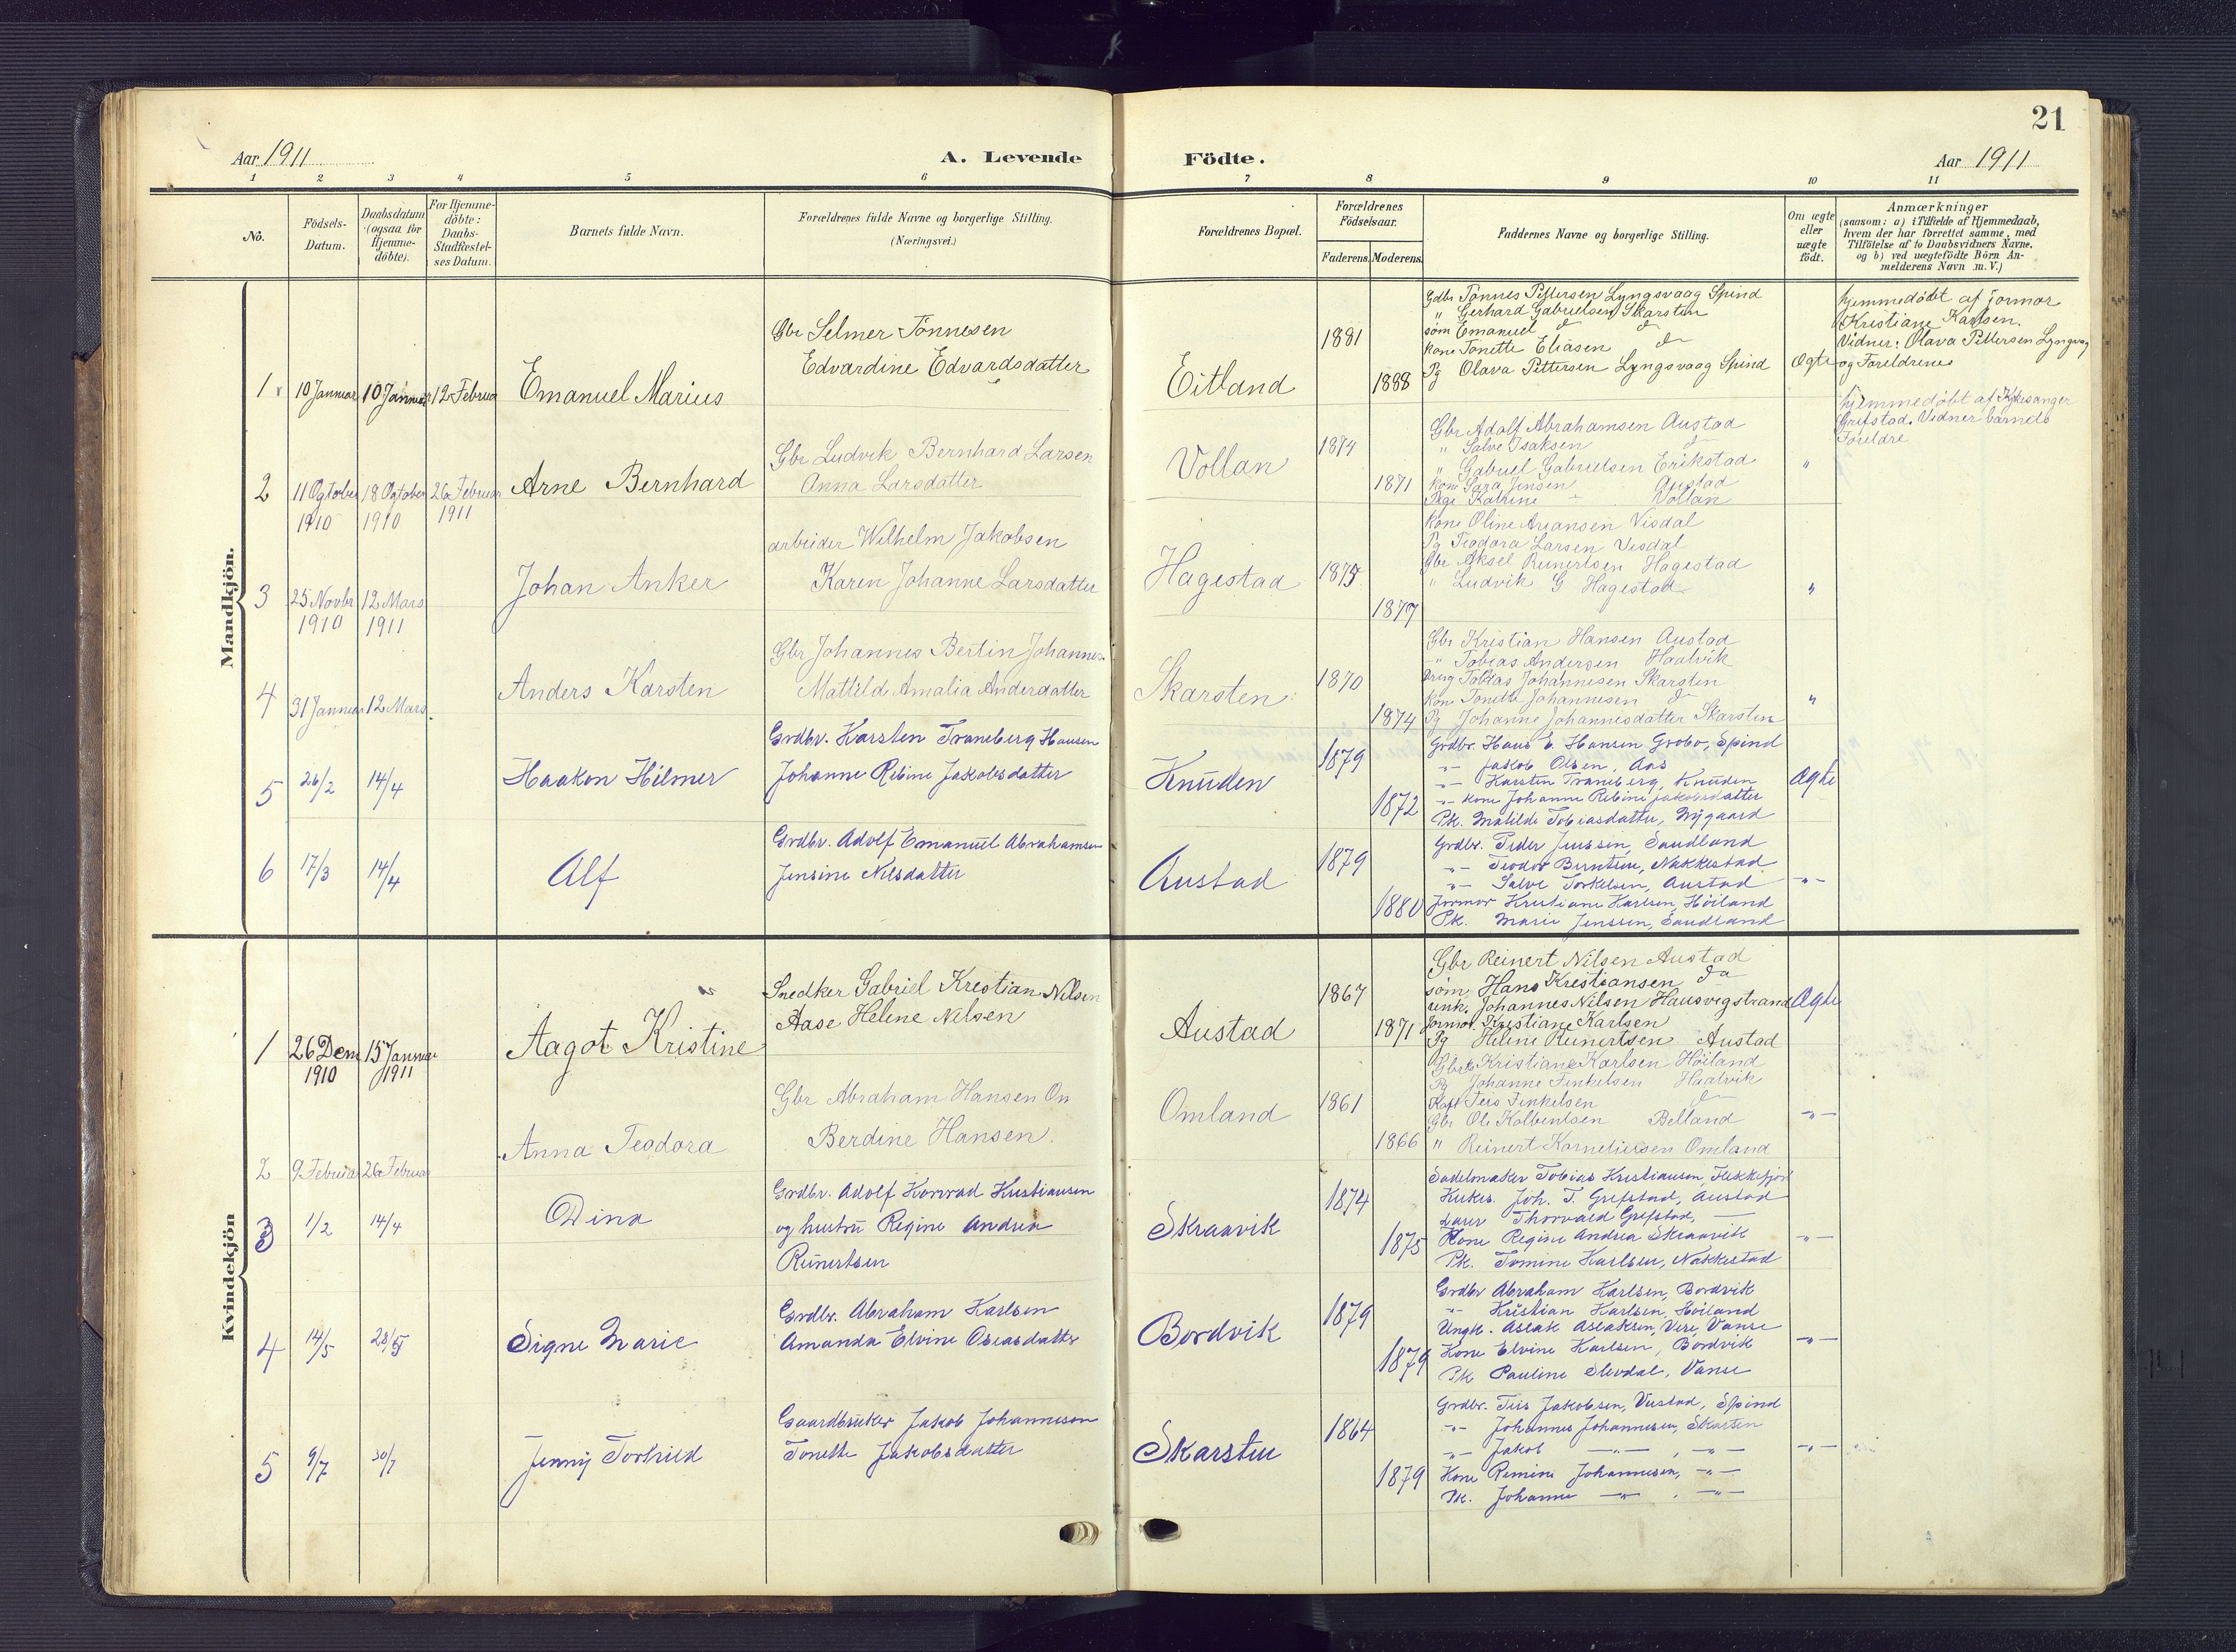 21
Aar 1911
A. Levende
Födte.
Aar 1911
1 2 3 4 5 6 7 8 9 10 11
No.
Födsels-
Datum.
Daabsdatum
(ogsaa for
Hjemme-
döbte).
For Hjemme-
döbte:
Daabs-
Stadfæstel-
ses Datum.
Barnets fulde Navn.
Forældrenes fulde Navne og borgerlige Stilling.
(Næringsvei.)
Forældrenes Bopæl.
Forældrenes
Födselsaar.
Faderens. Moderens.
Faddernes Navne og borgerlige Stilling.
Om ægte
eller
uægte
födt.
Anmærkninger
(saasom: a) i Tilfælde af Hjemmedaab,
hvem der har forrettet samme, med
Tilföielse af to Daabsvidners Navne,
og b) ved uægtefödte Börn An-
melderens Navn m. V.)
Mandkjön.
1 10 Januar 10 Januar 12 Februa
Emanuel Marius
Gbr Selmer Tönnesen
Edvardine Edvardsdatter
Eitland
1881
1888
Gdbr Tönnes Pettersen Lyngsvaag Spind
" Gerhard Gabrielsen Skarsten
söm Emanuel do do
Kone Tonette Eliasen do
Pg Olava Pettersen Lyngsvaag Spind
Ægte
hjemmedöbt af jormor
Kristiane Karlsen.
Vidner: Olava Pettersen Lyngsvag
og Foreldrene
2 11 Ogtober 18 Ogtober 26 Februar
1910 1910 1911
Arne Bernhard
Gbr Ludvik Bernhard Larsen
Anna Larsdatter
Vollan
1874
1871
Gbr Adolf Abrahamsen Austad
" Salve Isaksen do
" Gabriel Gabrielsen Erikstad
Kone Sara Jensen Austad
Pige Katrine - Vollan
"
hjemmedöbt af Kirkesanger
Grefstad. Vidner barnets
Foreldre
3 25 Novbr 12 Mars
1910 1911
Johan Anker
arbeider Wilhelm Jakobsen
Karen Johanne Larsdatter
Hagestad
1875
1877
Kone Oline Ariansen Visdal
Pg Teodora Larsen Visdal
Gbr Aksel Reinertsen Hagestad
" Ludvik G Hagestad
"
4 31 Januar 12 Mars.
Anders Karsten
Gbr Johannes Bertin Johannes.
Mattild Amalia Andersdatter
Skarsten
1870
1874
Gbr Kristian Hansen Austad
" Tobias Andersen Haalvik
Tobias Johannesen Skarsten
Kone Tonette Johannesen do
Pg Johanne Johannesdatter Skarsten
"
5 26/2 14/4
Haakon Hilmer
Grdbr. Karsten Traneberg Hansen
Johanne Rebine Jakobsdatter
Knuden
1879
1872
Grdbr. Hans E. Hansen Grobo, Spind
-"- Jakob Olsen, Aas
-"- Karsten Traneberg, Knuden
-"- kone Johanne Rebine Jakobsdatter
Pk. Matilde Tobiasdatter, Nygaard
Ægte
6 17/3 14/4
Alf
Grdbr. Adolf Emanuel Abrahamsen
Jensine Nilsdatter
Austad
1879
1880
Grdbr. Peder Jenssen, Sandland
-"- Teodor Berntsen, Nakkestad
-"- Salve Torkelsen, Austad
Jormor Kristiane Karlsen, Höiland
Pk. Marie Jenssen, Sandland
-"-
Kvindekjön
1 26 Dem 15 Januar
1910 1911
Aagot Kristine
Snedker Gabriel Kristian Nilsen
Aase Helene Nilsen
Austad
1867
1871
Gbr Reinert Nilsen Austad
söm Hans Kristiansen do
unk. Johannes Nilsen Hausvigstrand
Jormor. Kristiane Karlsen
Pg Helene Reinertsen Austad
Ægte
2 9 Februar 26 Februar
Anna Teodora
Gbr Abraham Hansen Om
Berdine Hansen.
Omland
1861
1866
Kristiane Karlsen Höiland
Pg Johanne Finkelsen Haalvik
Teis Finkelsen do
Gbr Ole Kolbentsen Belland
" Reinert Korneliusen Omland
-"-
3 1/2 14/4
Dina
Grdbr. Adolf Konrad Kristiansen
og hustru Regine Andrea
Reinertsen
Skraavik
1874
1875
Sadelmaker Tobias Kristiansen, Flekkefjord
Kirkes. Joh. T. Grefstad, Austad
Lærer Thorvald Grefstad, —
Kone Regine Andrea Skraavik
Pk. Tomine Karlsen, Nakkestad
-"-
4 14/5 28/5
Signe Marie
Grdbr. Abraham Karlsen
Amanda Elvine Oseasdatter
Bordvik
1879
1879
Grdbr Abraham Karlsen, Bordvik
-"- Kristian Karlsen, Höiland
Ungk. Aslak Aslaksen, Vere, Vanse
Kone Elvine Karlsen, Bordvik
Pk Pauline Slevdal, Vanse
-"-
5 9/7 30/7
Jenny Torhild
Gaardbruker Jakob Johannesen
Tonette Jakobsdatter
Skarsten
1864
1879
Grdbr. Teis Jakobsen, Vustad, Spind
-"- Johannes Johannesen, Skarsten
-"- Jakob -"-, -"-
Kone Remine Johannesen, -"-
Pk. Johanne -"-, -"-
-"-